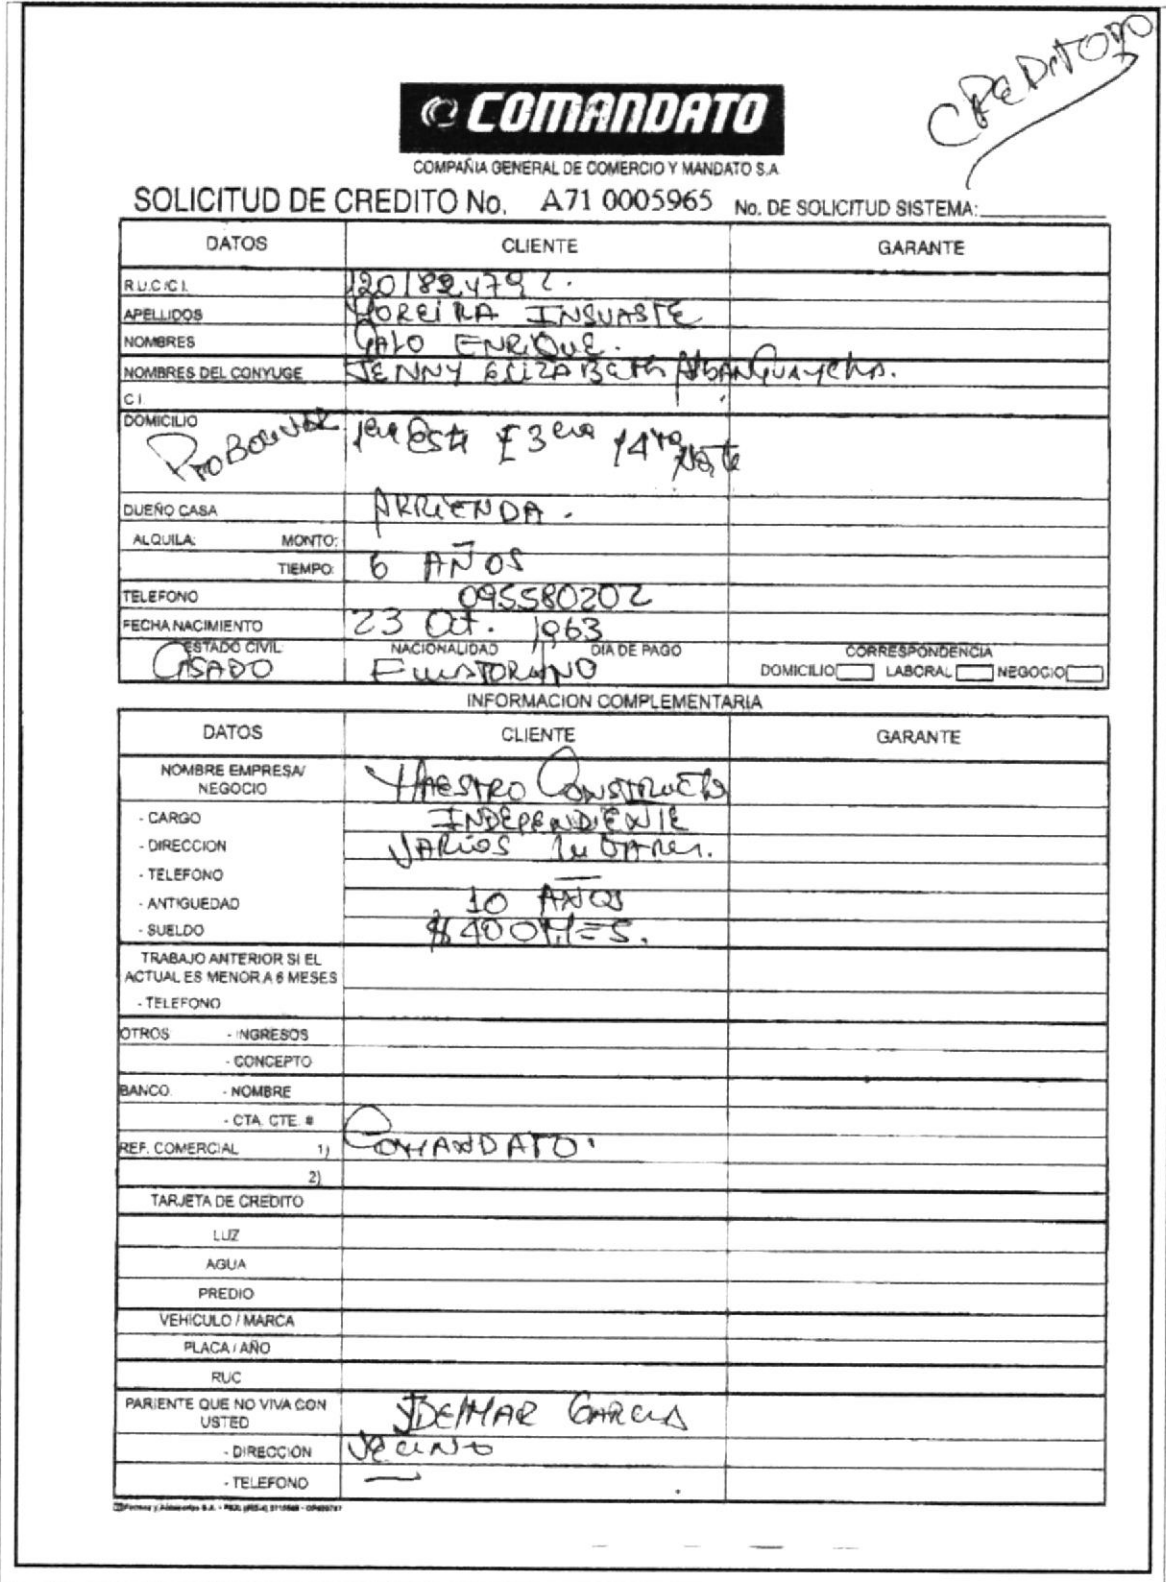 CREDITODO
COMANDATO
COMPAÑIA GENERAL DE COMERCIO Y MANDATO S.A
SOLICITUD DE CREDITO No. A71 0005965 No. DE SOLICITUD SISTEMA:
DATOS CLIENTE GARANTE
R.U.C/C.I. 120182479
APELLIDOS MOREIRA INSUASTE
NOMBRES GALO ENRIQUE.
NOMBRES DEL CONYUGE JENNY ELIZABETH
C.I.
DOMICILIO Este Norte
DUEÑO CASA ARRIENDA.
ALQUILA: MONTO:
TIEMPO: 6 AÑOS
TELEFONO 095580202
FECHA NACIMIENTO 23 Oct. 1963
ESTADO CIVIL NACIONALIDAD DIA DE PAGO CORRESPONDENCIA
CASADO DOMICILIO LABORAL NEGOCIO
INFORMACION COMPLEMENTARIA
DATOS CLIENTE GARANTE
NOMBRE EMPRESA/
NEGOCIO MAESTRO
- CARGO INDEPENDIENTE
- DIRECCION VARIOS LUGARES.
- TELEFONO —
- ANTIGUEDAD 10 AÑOS
- SUELDO $ 400 MES.
TRABAJO ANTERIOR SI EL
ACTUAL ES MENOR A 6 MESES
- TELEFONO
OTROS - INGRESOS
- CONCEPTO
BANCO. - NOMBRE
- CTA. CTE. #
REF. COMERCIAL 1) COMANDATO.
2)
TARJETA DE CREDITO
LUZ
AGUA
PREDIO
VEHICULO / MARCA
PLACA / AÑO
RUC
PARIENTE QUE NO VIVA CON
USTED GARCIA
- DIRECCION
- TELEFONO —